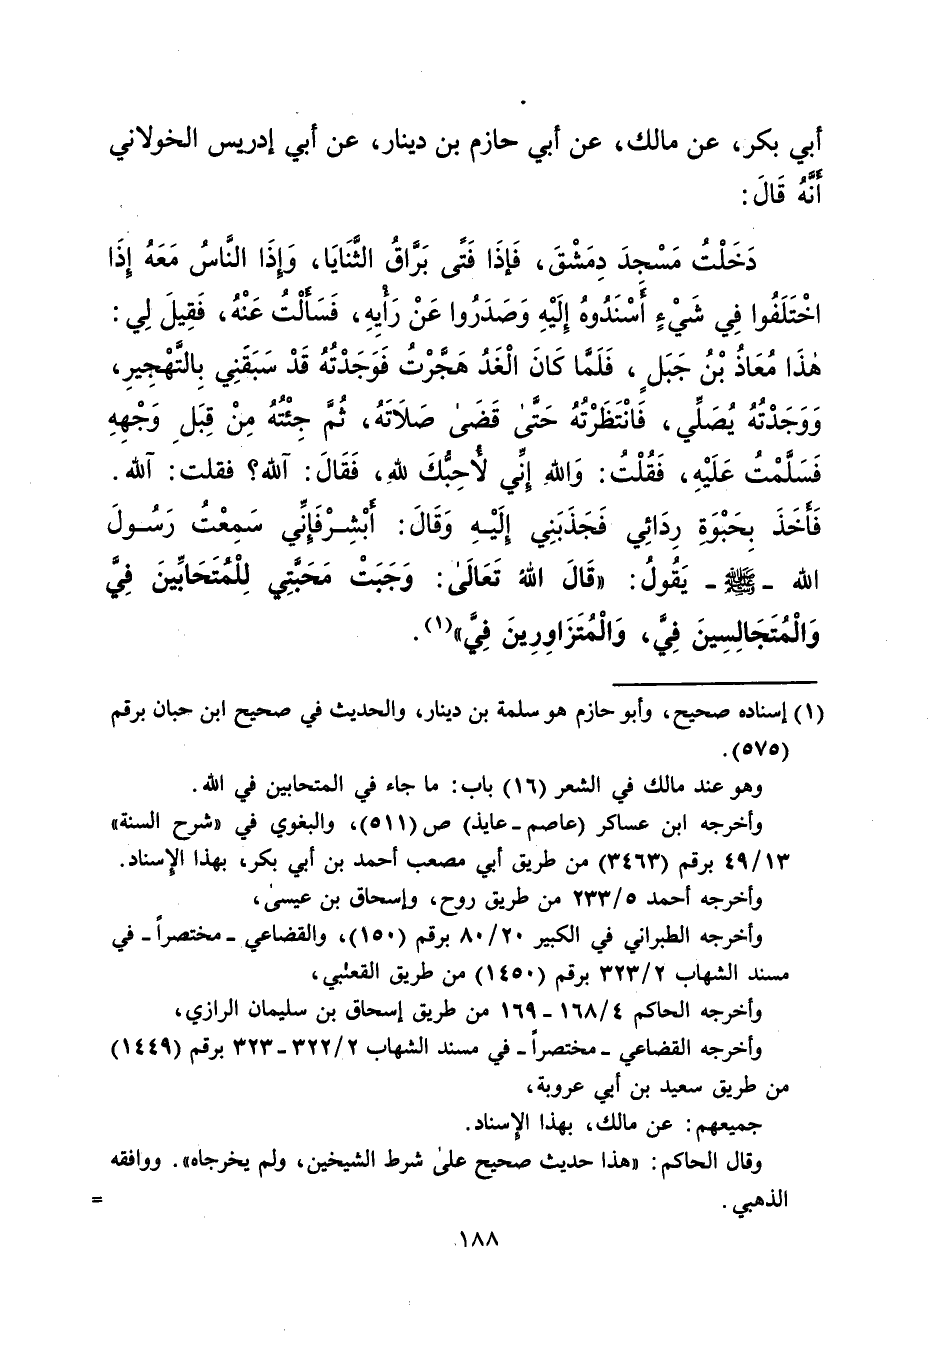 أبي بكر، عن مالك، عن أبي حازم بن دينار، عن أبي إدريس الخولاني
أَنَّهُ قَالَ:
دَخَلْتُ مَسْجِدَ دِمَشْقَ، فَإِذَا فَتًى بَرَّاقُ الثَّنَايَا، وَإِذَا النَّاسُ مَعَهُ إِذَا
اخْتَلَفُوا فِي شَيْءٍ أَسْنَدُوهُ إِلَيْهِ وَصَدَرُوا عَنْ رَأْيِهِ، فَسَأَلْتُ عَنْهُ، فَقِيلَ لِي:
هٰذَا مُعَاذُ بْنُ جَبَلٍ، فَلَمَّا كَانَ الْغَدُ هَجَّرْتُ فَوَجَدْتُهُ قَدْ سَبَقَنِي بِالتَّهْجِيرِ،
وَوَجَدْتُهُ يُصَلِّي، فَانْتَظَرْتُهُ حَتَّىٰ قَضَىٰ صَلَاتَهُ، ثُمَّ جِئْتُهُ مِنْ قِبَلِ وَجْهِهِ
فَسَلَّمْتُ عَلَيْهِ، فَقُلْتُ: وَاللهِ إِنِّي لَأُحِبُّكَ للهِ، فَقَالَ: آللهِ؟ فقلت: آلله.
فَأَخَذَ بِحَبْوَةِ رِدَائِي فَجَذَبَنِي إِلَيْهِ وَقَالَ: أَبْشِرْ فَإِنِّي سَمِعْتُ رَسُولَ
الله - ﷺ - يَقُولُ: «قَالَ اللهُ تَعَالَىٰ: وَجَبَتْ مَحَبَّتِي لِلْمُتَحَابِّينَ فِيَّ
وَالْمُتَجَالِسِينَ فِيَّ، وَالْمُتَزَاوِرِينَ فِيَّ»(١).
(١) إسناده صحيح، وأبو حازم هو سلمة بن دينار، والحديث في صحيح ابن حبان برقم
(٥٧٥).
وهو عند مالك في الشعر (١٦) باب: ما جاء في المتحابين في الله.
وأخرجه ابن عساكر (عاصم - عايذ) ص (٥١١)، والبغوي في «شرح السنة»
٤٩/١٣ برقم (٣٤٦٣) من طريق أبي مصعب أحمد بن أبي بكر، بهذا الإسناد.
وأخرجه أحمد ٢٣٣/٥ من طريق روح، وإسحاق بن عيسىٰ،
وأخرجه الطبراني في الكبير ٨٠/٢٠ برقم (١٥٠)، والقضاعي - مختصراً - في
مسند الشهاب ٣٢٣/٢ برقم (١٤٥٠) من طريق القعنبي،
وأخرجه الحاكم ١٦٨/٤ - ١٦٩ من طريق إسحاق بن سليمان الرازي،
وأخرجه القضاعي - مختصراً - في مسند الشهاب ٣٢٢/٢ - ٣٢٣ برقم (١٤٤٩)
من طريق سعيد بن أبي عروبة،
جميعهم: عن مالك، بهذا الإسناد.
وقال الحاكم: «هذا حديث صحيح علىٰ شرط الشيخين، ولم يخرجاه». ووافقه
الذهبي. =
١٨٨